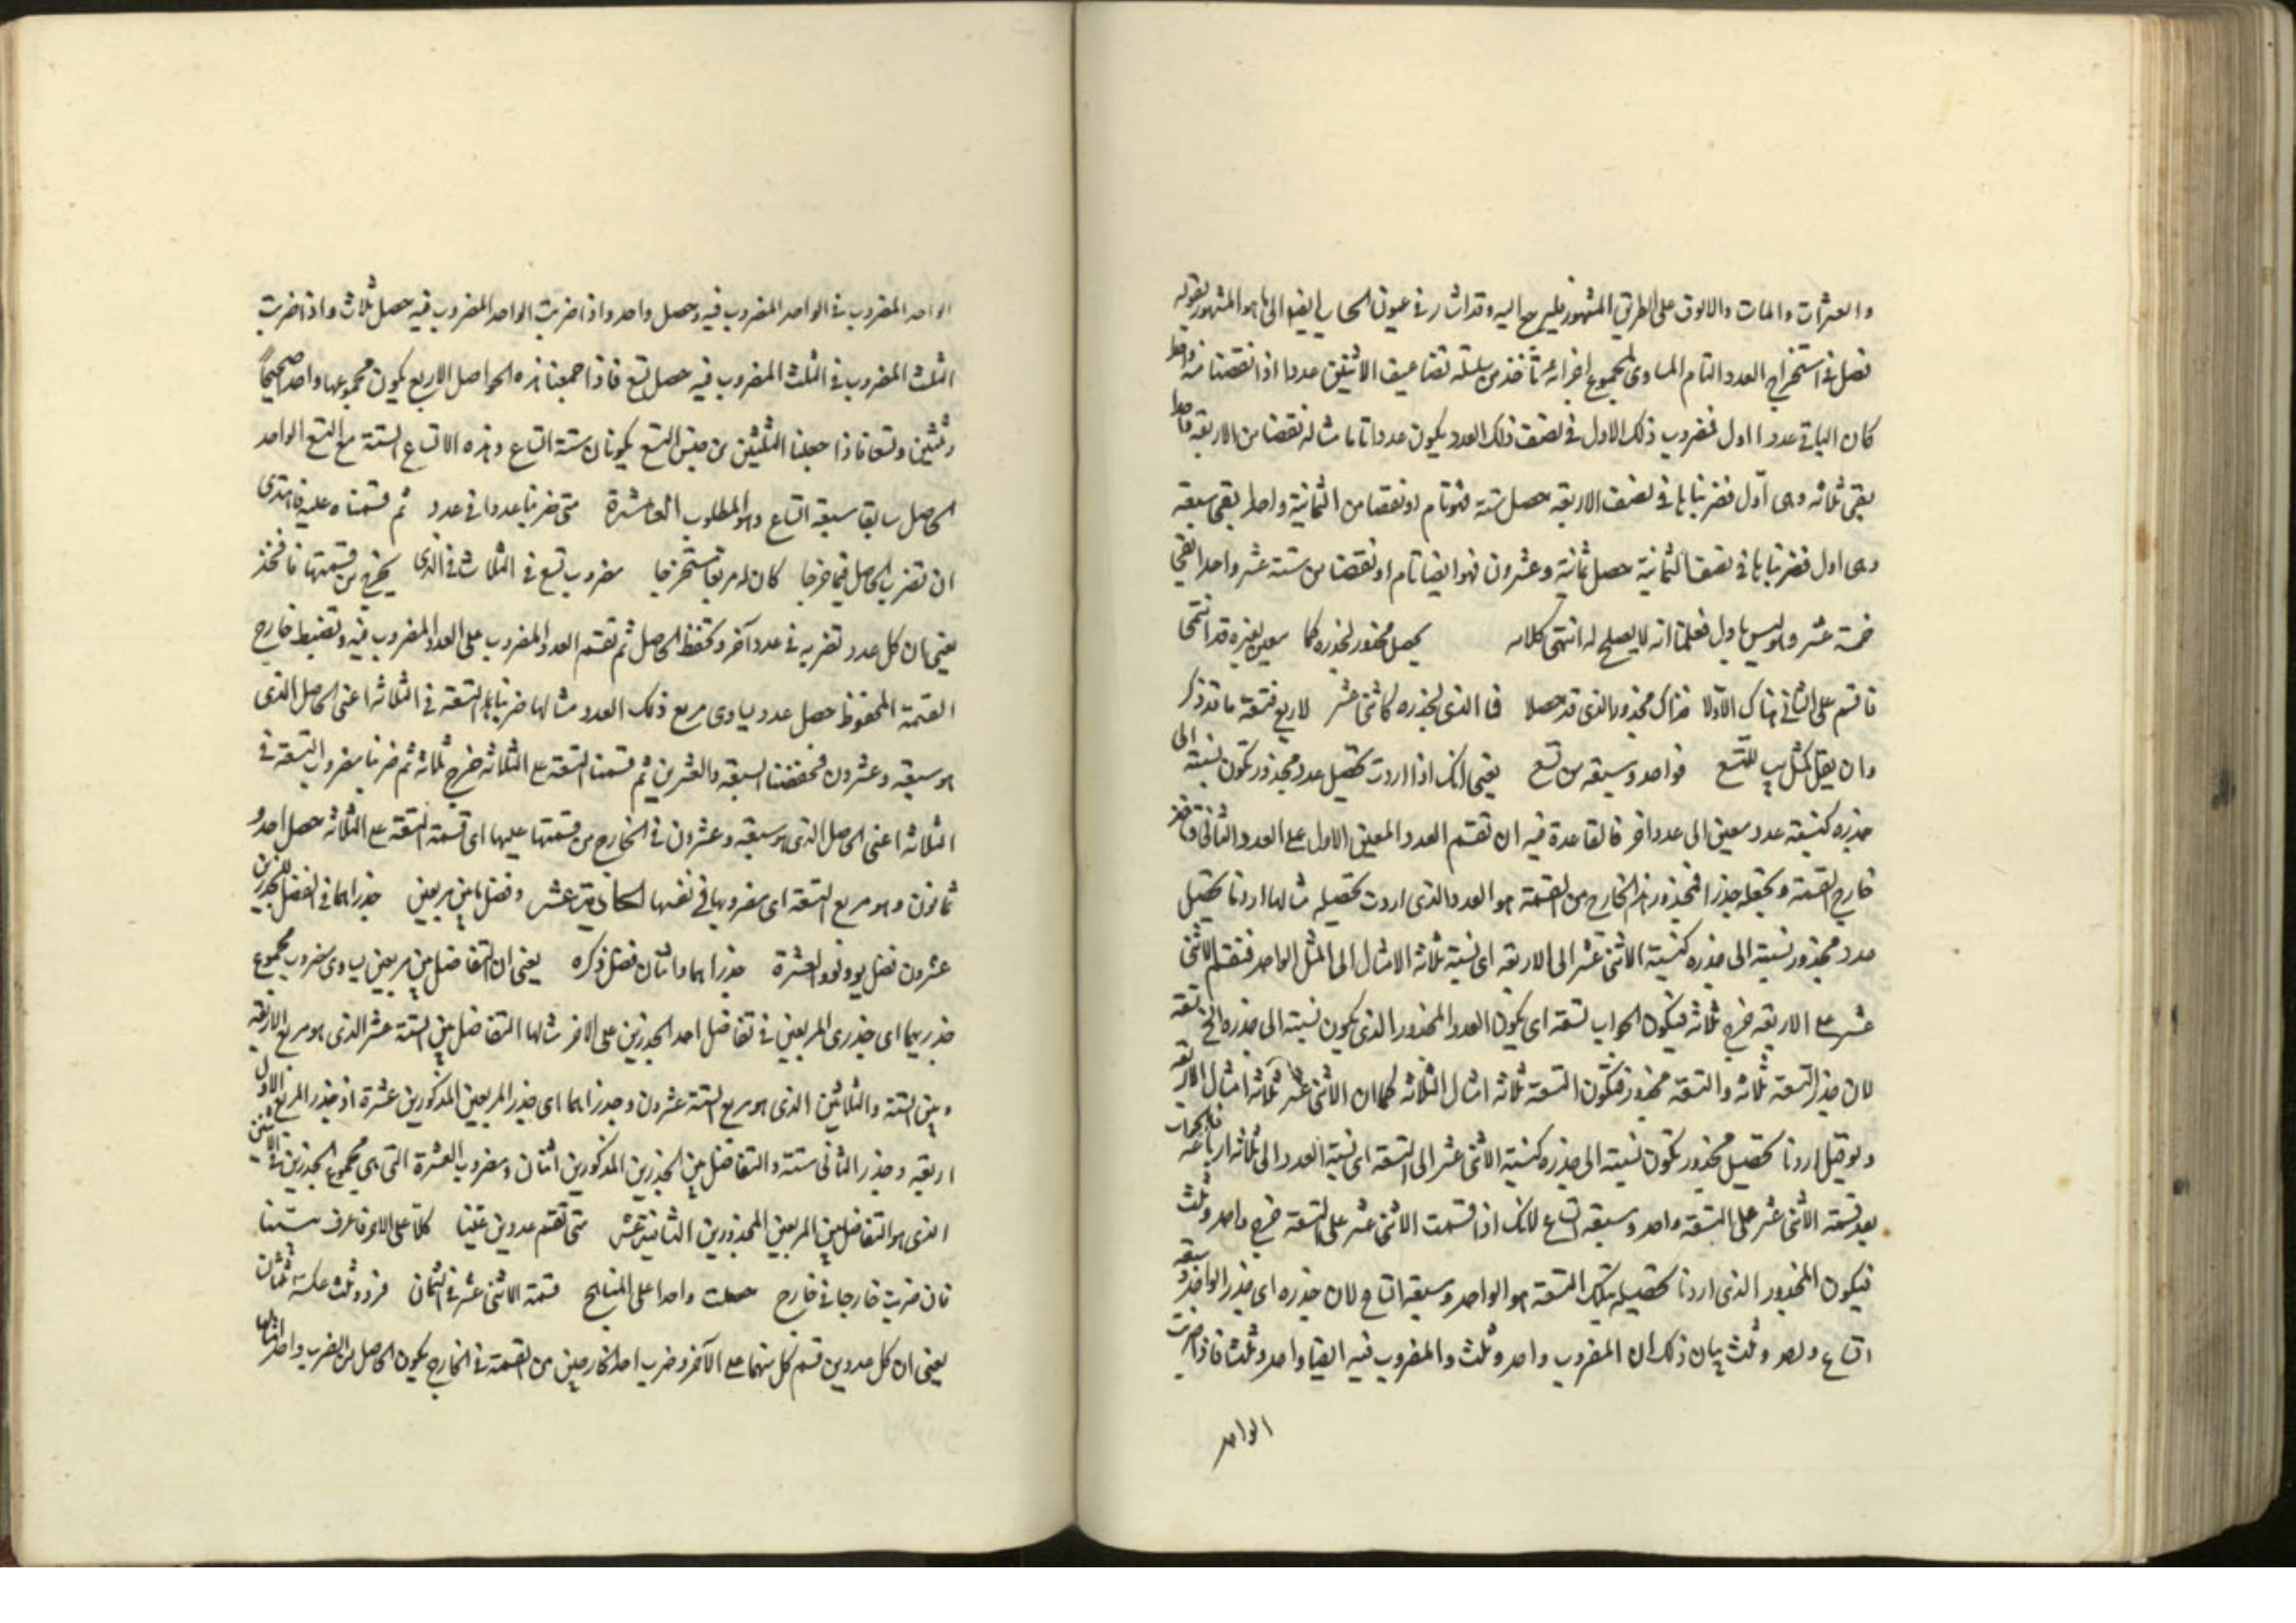 والعشرات والمات والالوف على الطريق المشهور فليرجع اليه وقد اشار في عيون الحساب ايضا الى ما هو المشهور بقوله
فصل في استخراج العدد التام المساوى لمجموع اجزائه تأخذ من سلسلة تضاعيف الاثنين عددا اذا نقصنا منه واحدا
كان الباقى عددا اول فمضروب ذلك الاول فى نصف ذلك العدد يكون عددا تاما مثاله نقصنا من الاربعة واحدا
بقى ثلاثه وهى اول فضربناها فى نصف الاربعه حصل ستة فهو تام او نقصنا من الثمانية واحدا بقى سبعه
وهى اول فضربناها فى نصف الثمانية حصل ثمانية وعشرون فهو ايضا تام او نقصنا من ستة عشر واحدا بقى
خمسة عشر وهو ليس باول فعلمنا انه لا يصلح له انتهى كلامه يحصل مجذور لجذره كما معين لغيره قد انتمى
فاقسم على الثانى هناك الاولا فذاك مجذورها الذى قد حصلا فما الذى لجذره كاثنى عشر لاربع فتسعة ما قد ذكر
وان يقل كمثل يب للتسع فواحد وسبعه من تسع يعنى انك اذا اردت تحصيل عدد مجذور تكون نسبته الى
جذره كنسبة عدد معين الى عدد اخر فالقاعدة فيه ان تقسم العدد المعين الاول على العدد الثانى فتأخذ
خارج القسمة وتجعله جذرا فمجذور هذا الخارج من القسمة هو العدد الذى اردت تحصيله مثالها اردنا تحصيل
عدد مجذور نسبته الى جذره كنسبة الاثنى عشر الى الاربعه اى نسبة ثلاثة الامثال الى المثل الواحد فنقسم الاثنى
عشر على الاربعه خرج ثلاثه فيكون الجواب تسعة اى يكون العدد المجذور الذى يكون نسبته الى جذره الخ تسعة
لان جذر التسعة ثلاثه والتسعة مجذور فتكون التسعة ثلاثه امثال الثلاثه كما ان الاثنى عشر ثلاثه امثال الاربعه
ولو قيل اردنا تحصيل مجذور تكون نسبته الى جذره كنسبة الاثنى عشر الى التسعة اى نسبة العدد الى ثلاثه ارباعه فالجواب
بعد قسمة الاثنى عشر على التسعة واحد وسبعه اتساع لانك اذا قسمت الاثنى عشر على التسعة خرج واحد وثلث
فيكون المجذور الذى اردنا تحصيله بتلك التسعة هو الواحد وسبعه اتساع لان جذره اى جذر الواحد وسبعه
اتساع واحد وثلث بيان ذلك ان المضروب واحد وثلث والمضروب فيه ايضا واحد وثلث فاذا ضربت
الواحد
الواحد المضروب فى الواحد المضروب فيه حصل واحد واذا ضربت الواحد المضروب فيه حصل ثلاث واذا ضربت
الثلث المضروب فى الثلث المضروب فيه حصل تسع فاذا جمعنا هذه الحواصل الاربع يكون مجموعها واحدا صحيحاً
وثلثين وتسعا فاذا جعلنا الثلثين من جنس التسع يكونان ستة اتساع وهذه الاتساع الستة مع التسع الواحد
الحاصل سابقا سبعة اتساع وهو المطلوب العاشرة متى ضربنا عددا فى عدد ثم قسمناه عليه فاهتدى
ان تضرب الحاصل فيما خرجا كان له مربعا مستخرجا مضروب تسع فى الثلاث فى الذى يخرج من قسمتها فاتخذ
يعنى ان كل عدد تضربه فى عدد آخر وتحفظ الحاصل ثم تقسم العدد المضروب على العدد المضروب فيه وتضبط خارج
القسمة المحفوظ حصل عدد يساوى مربع ذلك العدد مثالها ضربنا التسعة فى الثلاثه اعنى الحاصل الذى
هو سبعه وعشرون فحفظنا السبعه والعشرين ثم قسمنا التسعة على الثلاثه خرج ثلاثه ثم ضربنا مضروب التسعة فى
الثلاثه اعنى الحاصل الذى هو سبعه وعشرون فى الخارج من قسمتها عليها اى قسمة التسعة على الثلاثه حصل احد و
ثمانون وهو مربع التسعة اى مضروبها فى نفسها الحادية عشر وفضل ما بين مربعين جذراهما فى الفضل للجذرين
عشرون فضل يو ولو والعشرة جذراهما واثنان فضل ذكره يعنى ان التفاضل بين مربعين يساوى مضروب مجموع
جذريهما اى جذرى المربعين فى تفاضل احد الجذرين على الاخر مثالها التفاضل بين الستة عشر الذى هو مربع الاربعه
وبين الستة والثلاثين الذى هو مربع الستة عشرون وجذراهما اى جذر المربعين المذكورين عشرة اذ جذر المربع الاول
اربعه وجذر الثانى ستة والتفاضل بين الجذرين المذكورين اثنان ومضروب العشرة التى هى مجموع الجذرين فى الاثنين
الذى هو التفاضل بين المربعين المجذورين الثانية عشر متى تقسم عددين عينا كلا على الاخر فاعرف سننا
فان ضربت خارجا فى خارج حصلت واحدا على المناهج قسمة الاثنى عشر فى الثمان فرد وثلث عكسه ثلثان
يعنى ان كل عددين قسم كل منهما على الآخر وضرب احد الخارجين من القسمة فى الخارج يكون الحاصل من الضرب واحدا مثالها